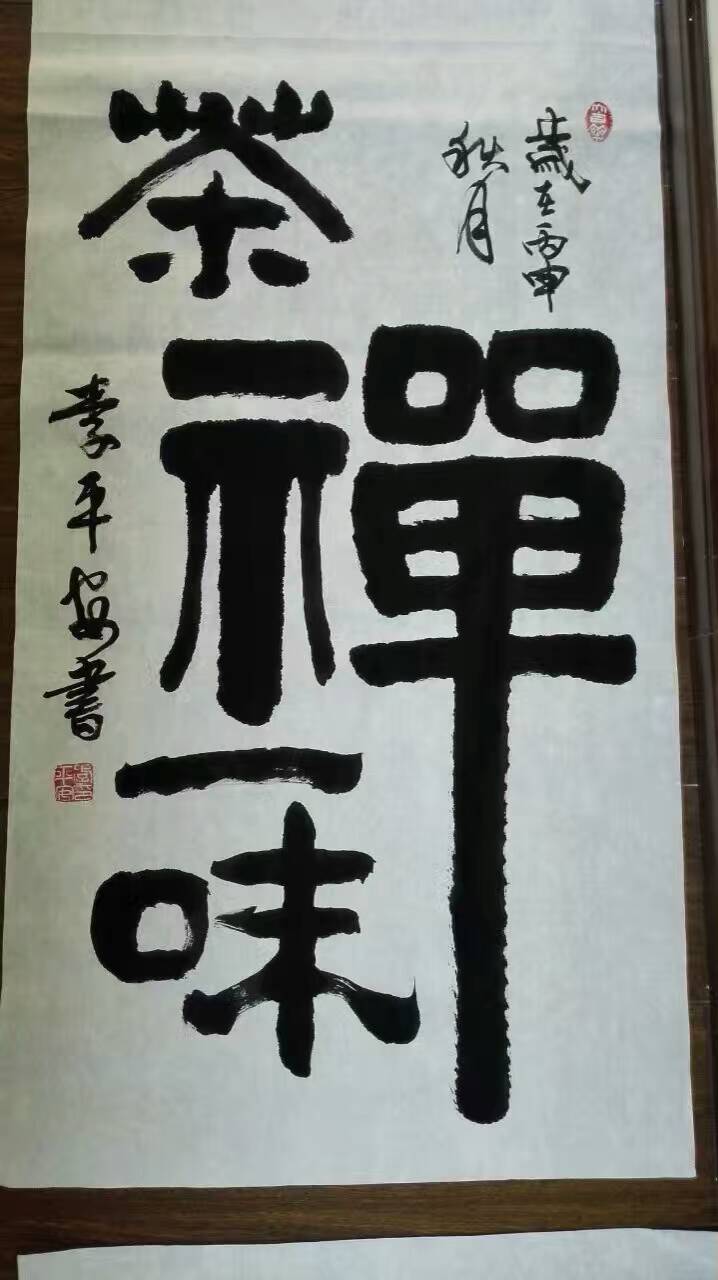 茶禪一味
歲在丙申
秋月
平安書